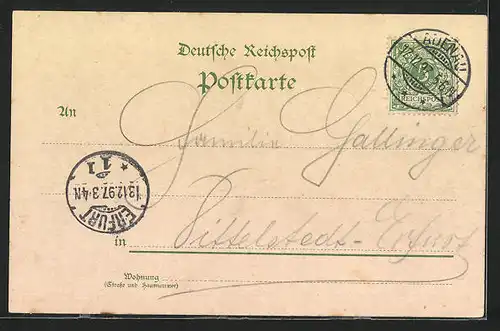 Deutsche Reichspost
Postkarte
LAUENAU
REICHSPOST
An
Familie Gallinger
* 1 *
13.12.97. 3-4N.
ERFURT
in
Bittelstedt-Erfurt
Wohnung
(Straße und Hausnummer)